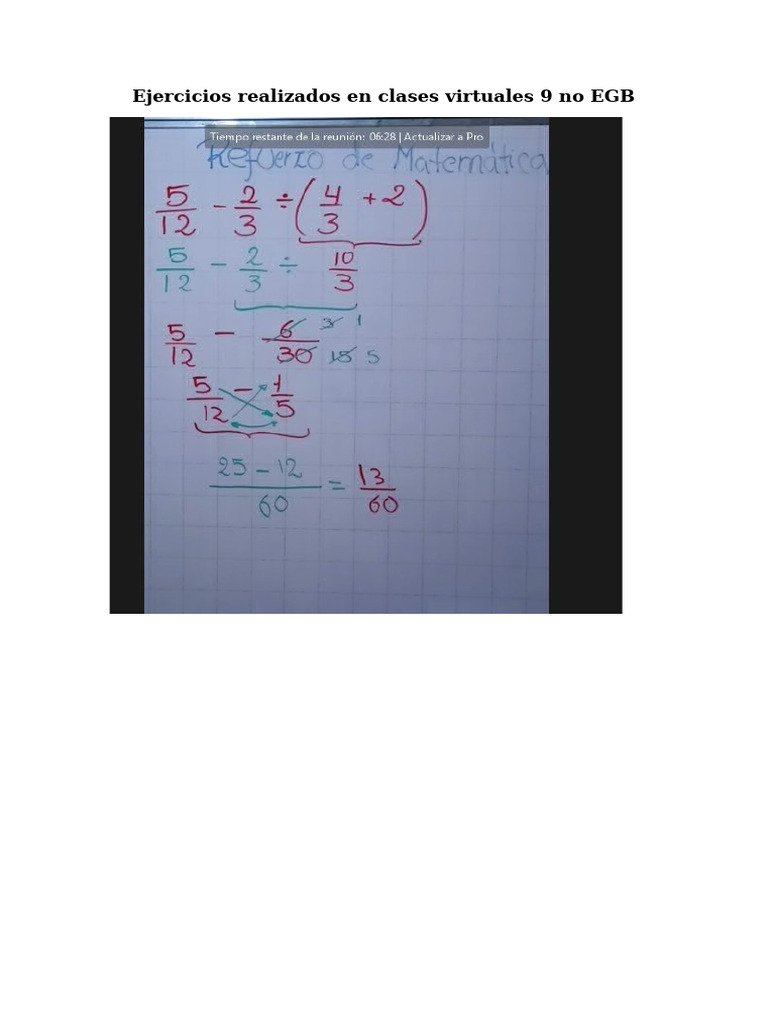 Ejercicios realizados en clases virtuales 9 no EGB
Tiempo restante de la reunión: 06:28 | Actualizar a Pro
Refuerzo de Matemática
5/12 - 2/3 ÷ (4/3 + 2)
5/12 - 2/3 ÷ 10/3
5/12 - 6/30 3 1 15 5
5/12 - 1/5
25 - 12/60 = 13/60